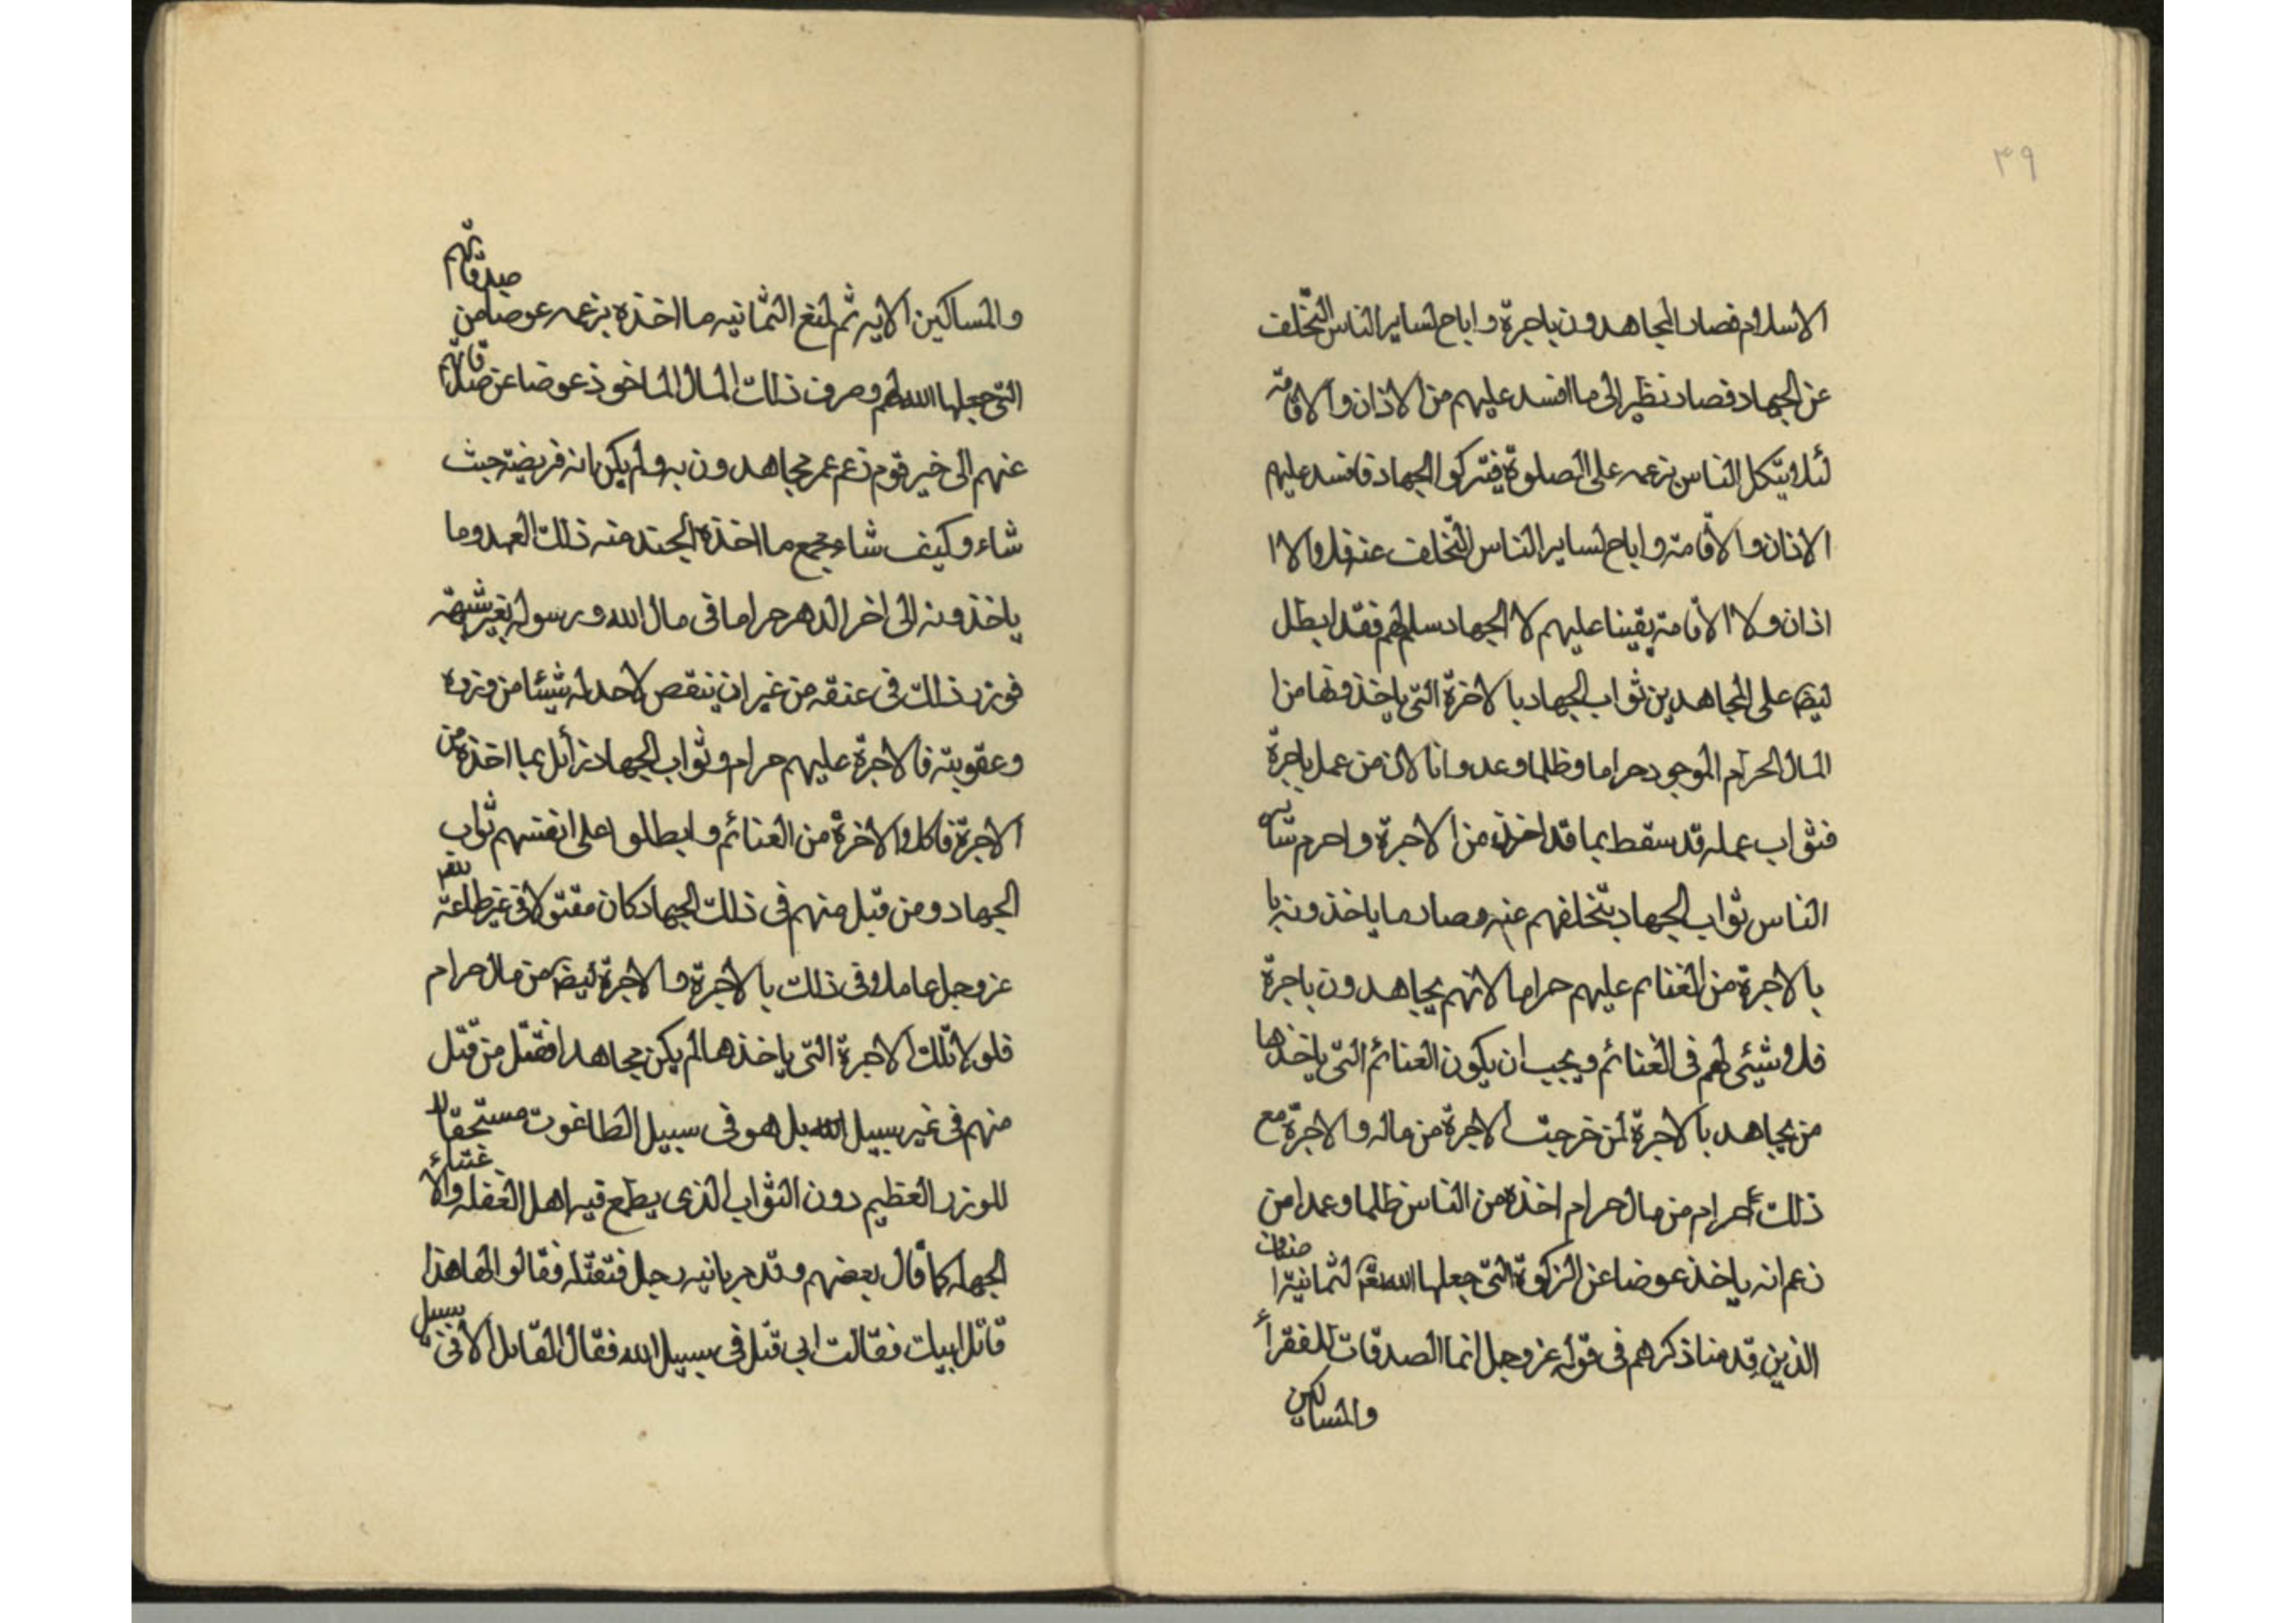 ٣٩
الاسلام فصار المجاهدون باجرة و اباح لساير الناس التخلف
عن الجهاد فصار نظير الى ما افسد عليهم من الاذان و الاقامة
لئلا يتكل الناس بزعمه على الصلوة فيتركوا الجهاد فافسد عليهم
الاذان و الاقامة و اباح لساير الناس التخلف عنه فلا و الا ا
اذان و لا الاقامة بقينا عليهم لا الجهاد سلم لهم فقد ابطل
ايضا على المجاهدين ثواب الجهاد با لاخرة التى ياخذونها من ا
المال الحرام الموجود حراما و ظلما و عدوانا لان من عمل باجرة
فثواب عمله قد سقط بما قد اخذه من الاجرة و احرم سائر
الناس ثواب الجهاد بتخلفهم عنه و صار ما ياخذونه با
بالاجرة من الغنايم عليهم حراما لانهم يجاهدون باجرة
فلا شيئى لهم فى الغنائم و يجب ان يكون الغنائم التى ياخذها
من يجاهد بالاجرة لمن خرجت الاجرة من ماله و الاجرة مع
ذلك حرام من مال حرام اخذه من الناس ظلما و عمدا من
زعم انه ياخذ عوضا عن الزكوة التى جعلها الله لثمانية اصناف
الذين قدمنا ذكرهم فى قوله عز و جل انما الصدقات للفقراء
والمساكين
والمساكين الايه ثم لمنع الثمانيه ما اخذه بزعمه عوضا من صدقاتهم
التى جعلها الله لهم و صرف ذلك المال الماخوذ عوضا عن صدقاتهم
عنهم الى خير قوم زعم عمر يجاهدون به و لم يكن انه فريضة حيث
شاء و كيف شاء جميع ما اخذه الجند منه ذلك العهد و ما
ياخذونه الى اخر الدهر حراما فى مال الله و رسوله بغير شبهة
فوزر ذلك فى عنقه من غير ان ينقص لاحد له شيئا من وزره
و عقوبته فالاجرة عليهم حرام و ثواب الجهاد زائل بما اخذه من
الاجرة فاكلوا الاخرة من الغنائم و ابطلوا على انفسهم ثواب
الجهاد و من قبل منهم فى ذلك الجهاد كان مقتولا فى غير طاعة الله
عز و جل عاملا و فى ذلك بالاجرة و الاجرة ايضا من مال حرام
فلولا تلك الاجرة التى ياخذها لم يكن مجاهدا فقتل من قتل
منهم فى غير سبيل الله بل هو فى سبيل الطاغوت مستحقا
للوزر العظيم دون الثواب الذى يطمع فيه اهل الغفله و الا غتناء
الجهله كما قال بعضهم و قد مر بانيه رجل فتقتله فقالوا لها هذا
قاتل ابيك فقالت ابى قتل فى سبيل الله فقال القاتل الا فى سبيل